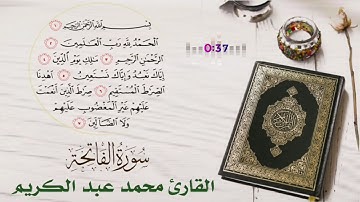 بِسْمِ اللَّهِ الرَّحْمَٰنِ الرَّحِيمِ ١
الْحَمْدُ لِلَّهِ رَبِّ الْعَالَمِينَ ٢
الرَّحْمَٰنِ الرَّحِيمِ ٣ مَالِكِ يَوْمِ الدِّينِ ٤
إِيَّاكَ نَعْبُدُ وَإِيَّاكَ نَسْتَعِينُ ٥ اهْدِنَا
الصِّرَاطَ الْمُسْتَقِيمَ ٦ صِرَاطَ الَّذِينَ أَنْعَمْتَ
عَلَيْهِمْ غَيْرِ الْمَغْضُوبِ عَلَيْهِمْ
وَلَا الضَّالِّينَ ٧
سُورَةُ الْفَاتِحَةِ
القارئ محمد عبد الكريم
0:37